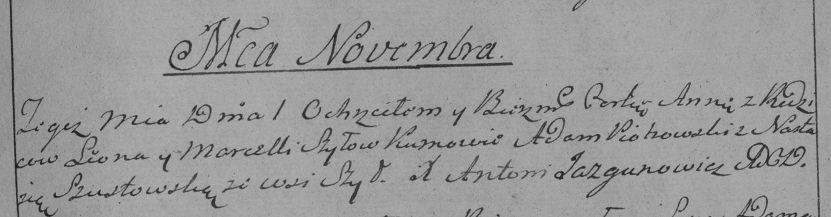 Mca Novembra.
Tegiż Mia Dnia 1 Ochzciłem y Bierzm Corkię Annę z Rodzi
cow Leona y Marcelli Szyłow Kumowie Adam Piotrowski z Nasta
zią Szustowską ze wsi Szył. X Antoni Jazgunowicz